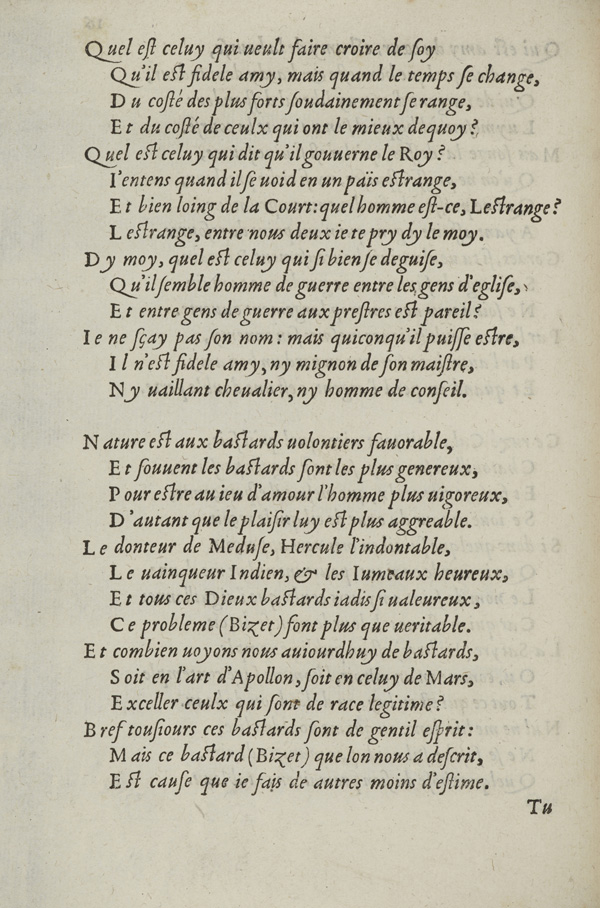 Quel eſt celuy qui ueult faire croire de ſoy
Qu'il eſt fidele amy, mais quand le temps ſe change,
Du coſté des plus forts ſoudainement ſe range,
Et du coſté de ceulx qui ont le mieux dequoy?
Quel eſt celuy qui dit qu'il gouuerne le Roy?
I'entens quand il ſe uoid en un païs eſtrange,
Et bien loing de la Court: quel homme eſt-ce, Leſtrange?
Leſtrange, entre nous deux ie te pry dy le moy.
Dy moy, quel eſt celuy qui ſi bien ſe deguiſe,
Qu'il ſemble homme de guerre entre les gens d'egliſe,
Et entre gens de guerre aux preſtres eſt pareil?
Ie ne ſçay pas ſon nom: mais quiconqu'il puiſſe eſtre,
Il n'eſt fidele amy, ny mignon de ſon maiſtre,
Ny uaillant cheualier, ny homme de conſeil.
Nature eſt aux baſtards uolontiers fauorable,
Et ſouuent les baſtards ſont les plus genereux,
Pour eſtre au ieu d'amour l'homme plus uigoreux,
D'autant que le plaiſir luy eſt plus aggreable.
Le donteur de Meduſe, Hercule l'indontable,
Le uainqueur Indien, & les Iumeaux heureux,
Et tous ces Dieux baſtards iadis ſi ualeureux,
Ce probleme (Bizet) font plus que ueritable.
Et combien uoyons nous auiourdhuy de baſtards,
Soit en l'art d'Apollon, ſoit en celuy de Mars,
Exceller ceulx qui ſont de race legitime?
Bref touſiours ces baſtards ſont de gentil eſprit:
Mais ce baſtard (Bizet) que lon nous a deſcrit,
Eſt cauſe que ie fais de autres moins d'eſtime.
Tu